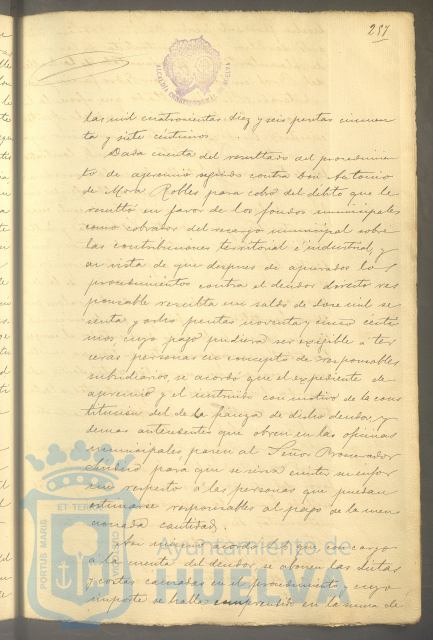 257
ALCALDIA CONSTITUCIONAL HUELVA
las mil cuatrocientas diez y seis pesetas cincuen
ta y siete céntimos.
Dada cuenta del resultado del procedimien
to de apremio seguido contra Don Antonio
de Mora Robles para cobro del débito que le
resultó en favor de los fondos municipales
como cobrador del recargo municipal sobre
las contribuciones territorial é industrial, y
en vista de que despues de apurados los
procedimientos contra el deudor directo res
ponsable resulta un saldo de doce mil se
senta y ocho pesetas noventa y cinco cénti
mos cuyo pago pudiera ser exigible a ter
ceras personas en concepto de responsables
subsidiarios, se acordó que el expediente de
apremio y el instruido con motivo de la cons
titucion del de la fianza de dicho deudor y
demas antecedentes que obren en las oficinas
municipales pasen al Señor Procurador
Síndico para que se sirva emitir su infor
me respecto á las personas que puedan
estimarse responsables al pago de la men
cionada cantidad.
acordó que con cargo
á la cuenta del deudor, se abonen las dietas
y costas causadas en el procedimiento y cuyo
importe se halla comprendido en la suma de
PORTUS MARIS ET TERRAE CUSTODIA
Ayuntamiento de
HUELVA